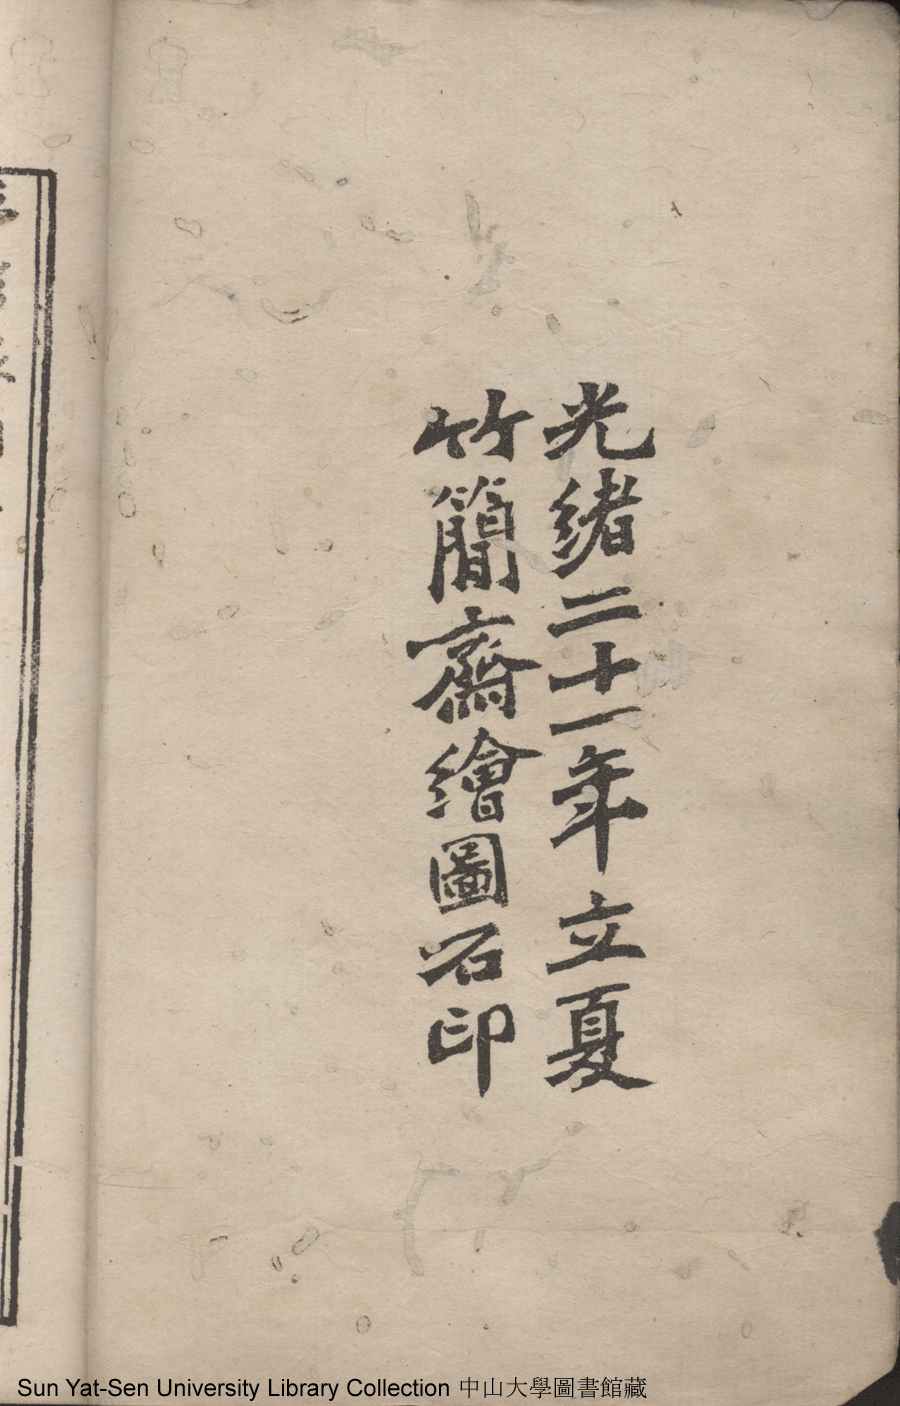 光緒二十一年立夏
竹簡齋繪圖石印
Sun Yat-Sen University Library Collection 中山大學圖書館藏